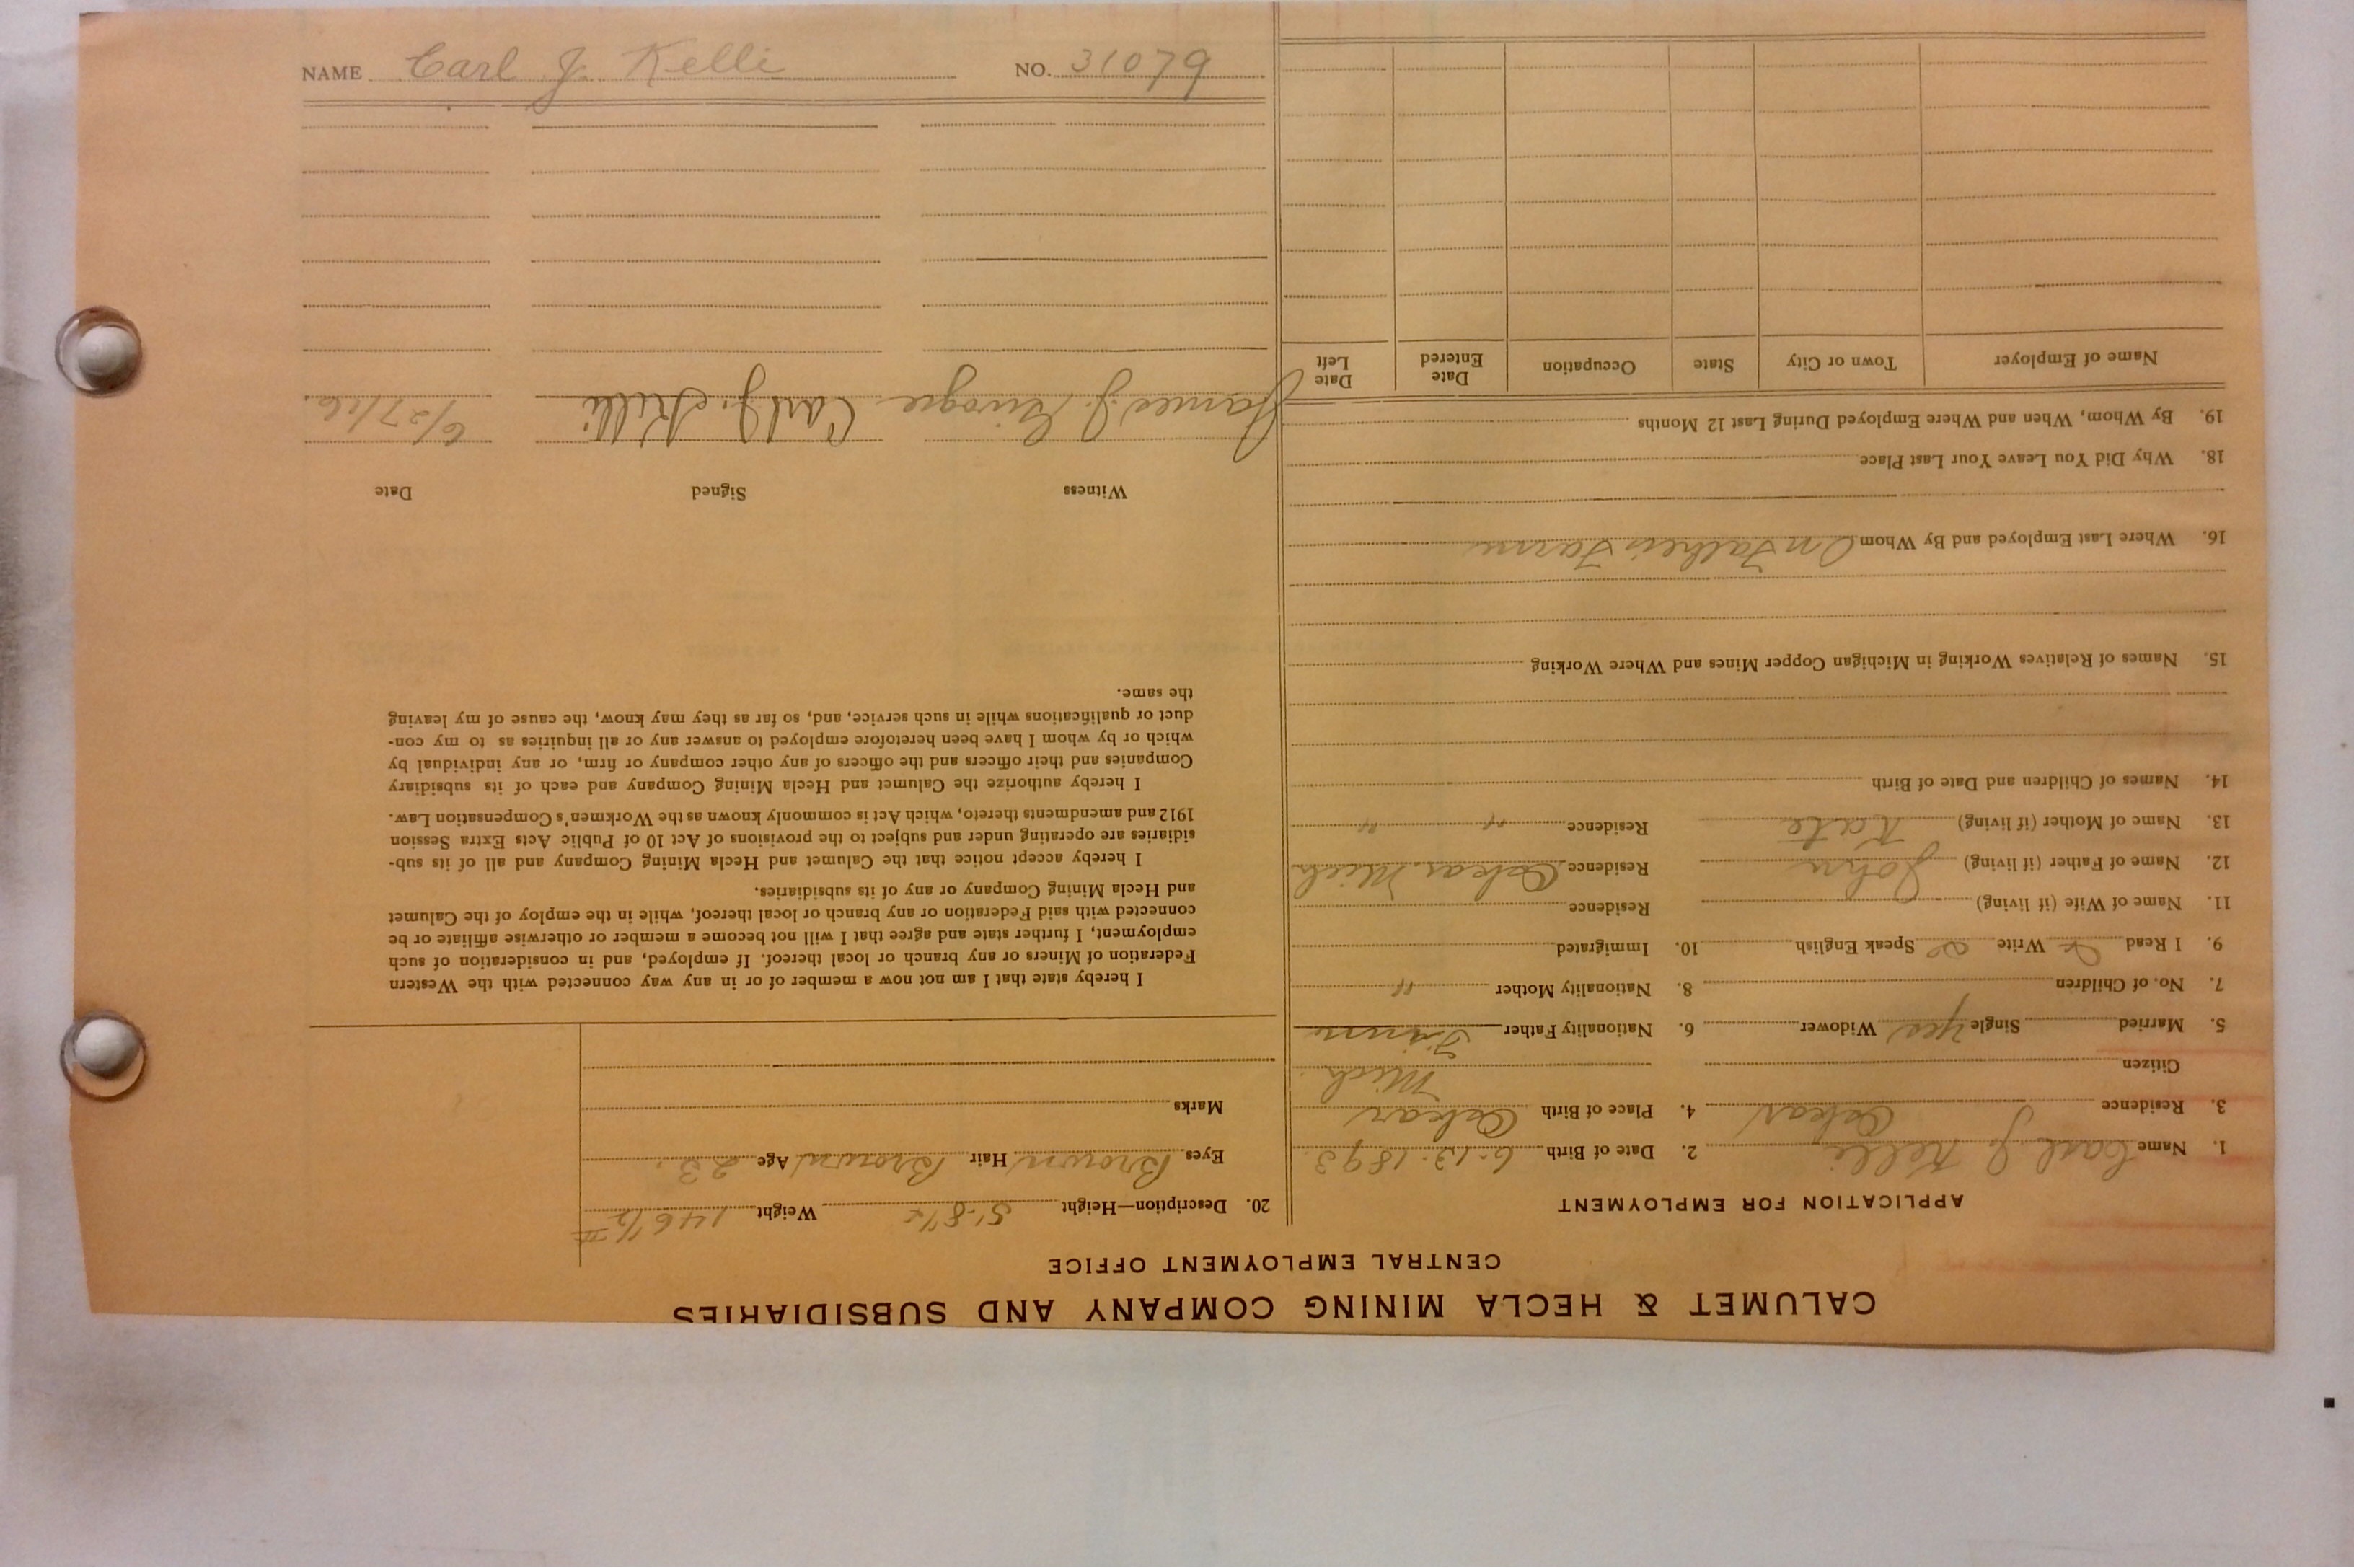 NAME Carl J. Kelli NO. 31079
CALUMET & HECLA MINING COMPANY AND SUBSIDIARIES
CENTRAL EMPLOYMENT OFFICE
APPLICATION FOR EMPLOYMENT
1. Name Carl J. Kelli 2. Date of Birth 6-13-1893
3. Residence Oskar 4. Place of Birth Oskar
Mich
Citizen
5. Married Single Yes Widower 6. Nationality Father Finn
7. No. of Children 8. Nationality Mother "
9. I Read Write Speak English 10. Immigrated
11. Name of Wife (if living) Residence
12. Name of Father (if living) John Residence Oskar Mich
13. Name of Mother (if living) Kate Residence " "
14. Names of Children and Date of Birth
15. Names of Relatives Working in Michigan Copper Mines and Where Working
16. Where Last Employed and By Whom On Fathers Farm
18. Why Did You Leave Your Last Place
19. By Whom, When and Where Employed During Last 12 Months
Name of Employer Town or City State Occupation Date Entered Date Left
20. Description—Height 5'-8½ Weight 146½ #
Eyes Brown Hair Brown Age 23.
Marks
I hereby state that I am not now a member of or in any way connected with the Western
Federation of Miners or any branch or local thereof. If employed, and in consideration of such
employment, I further state and agree that I will not become a member or otherwise affiliate or be
connected with said Federation or any branch or local thereof, while in the employ of the Calumet
and Hecla Mining Company or any of its subsidiaries.
I hereby accept notice that the Calumet and Hecla Mining Company and all of its sub-
sidiaries are operating under and subject to the provisions of Act 10 of Public Acts Extra Session
1912 and amendments thereto, which Act is commonly known as the Workmen's Compensation Law.
I hereby authorize the Calumet and Hecla Mining Company and each of its subsidiary
Companies and their officers and the officers of any other company or firm, or any individual by
which or by whom I have been heretofore employed to answer any or all inquiries as to my con-
duct or qualifications while in such service, and, so far as they may know, the cause of my leaving
the same.
Witness Signed Date
James J. Carl J. Kelli 6/27/16